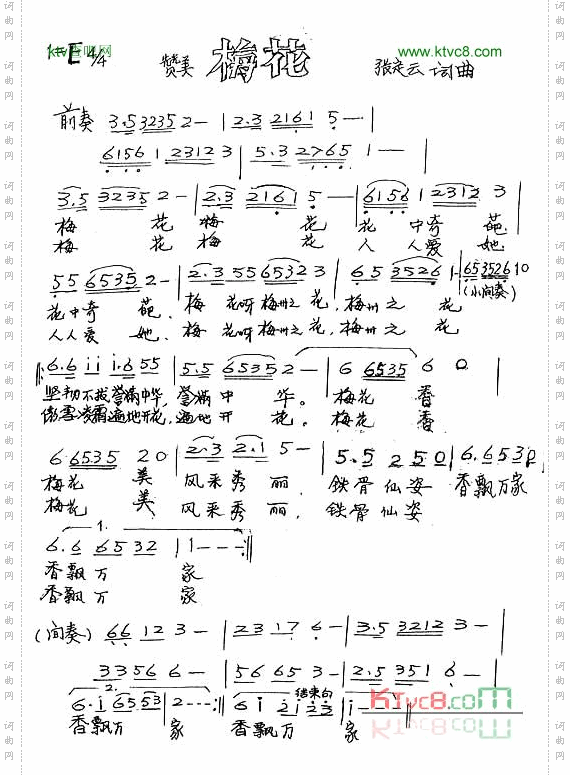 ktv歌吧网
www.ktvc8.com
1=E 4/4 赞美 梅花 张定云 词曲
前奏 3.5 3235 2 - | 2.3 2161 5 - |
6156 1 2312 3 | 5.3 2765 1 - - |
3.5 3235 2 - | 2.3 2161 5 - | 6156 1 2312 3
梅 花 梅 花 花 中奇 葩
梅 花 梅 花 人 人爱 她
55 6535 2 - | 2.3 55 6532 3 | 6 5 3526 1 - | 653526 10
花中奇 葩. 梅 花呀 梅州之 花, 梅州之 花 (小间奏)
人人爱 她. 梅 花呀 梅州之 花, 梅州之 花
‖: 6.6 i i i.6 55 | 5.5 6535 2 - | 6 6535 6 0
坚韧不拔誉满中华, 誉满 中 华。 梅花 香
傲雪凌霜遍地开花, 遍地 开 花. 梅花 香
6 6535 2 0 | 2.3 2.1 5 - | 5.5 2 5 0 | 6.6 53 0
梅花 美 风采秀 丽 铁骨 仙姿 香飘万家
梅花 美 风采秀 丽. 铁骨 仙姿
1.
6.6 65 32 | 1 - - - :‖
香飘万 家
香飘万 家
(间奏) 66 12 3 - | 23 17 6 - | 3.5 3212 3 - |
3356 6 - | 5665 3 - | 2.5 351 6 - |
2. 结束句
6.i 6553 | 2 - - - :‖ 6 i 2i23 | i - - -
香飘万 家 香飘万 家
KTVC8.com
词曲网